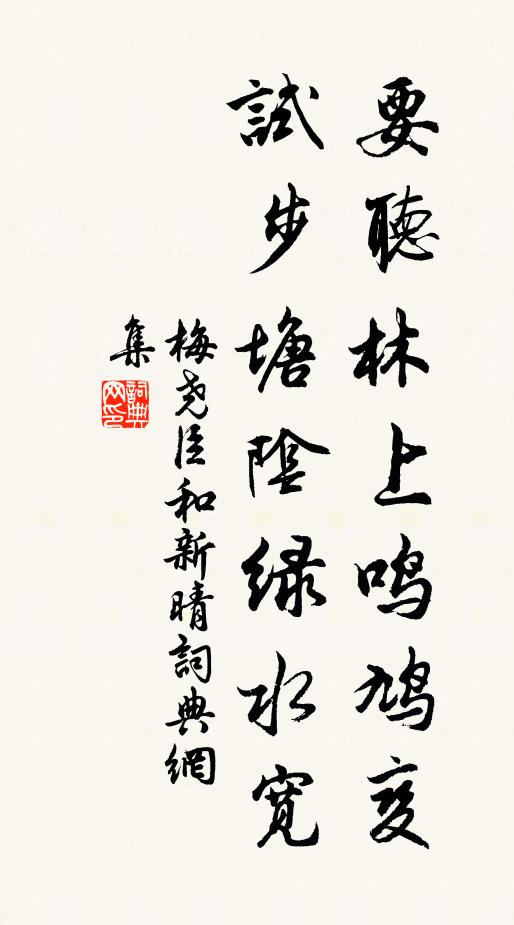 要聽林上鳴鳩変
試步塘陰緑水寛
梅尧臣和新晴詞典網
集
詞典
网印